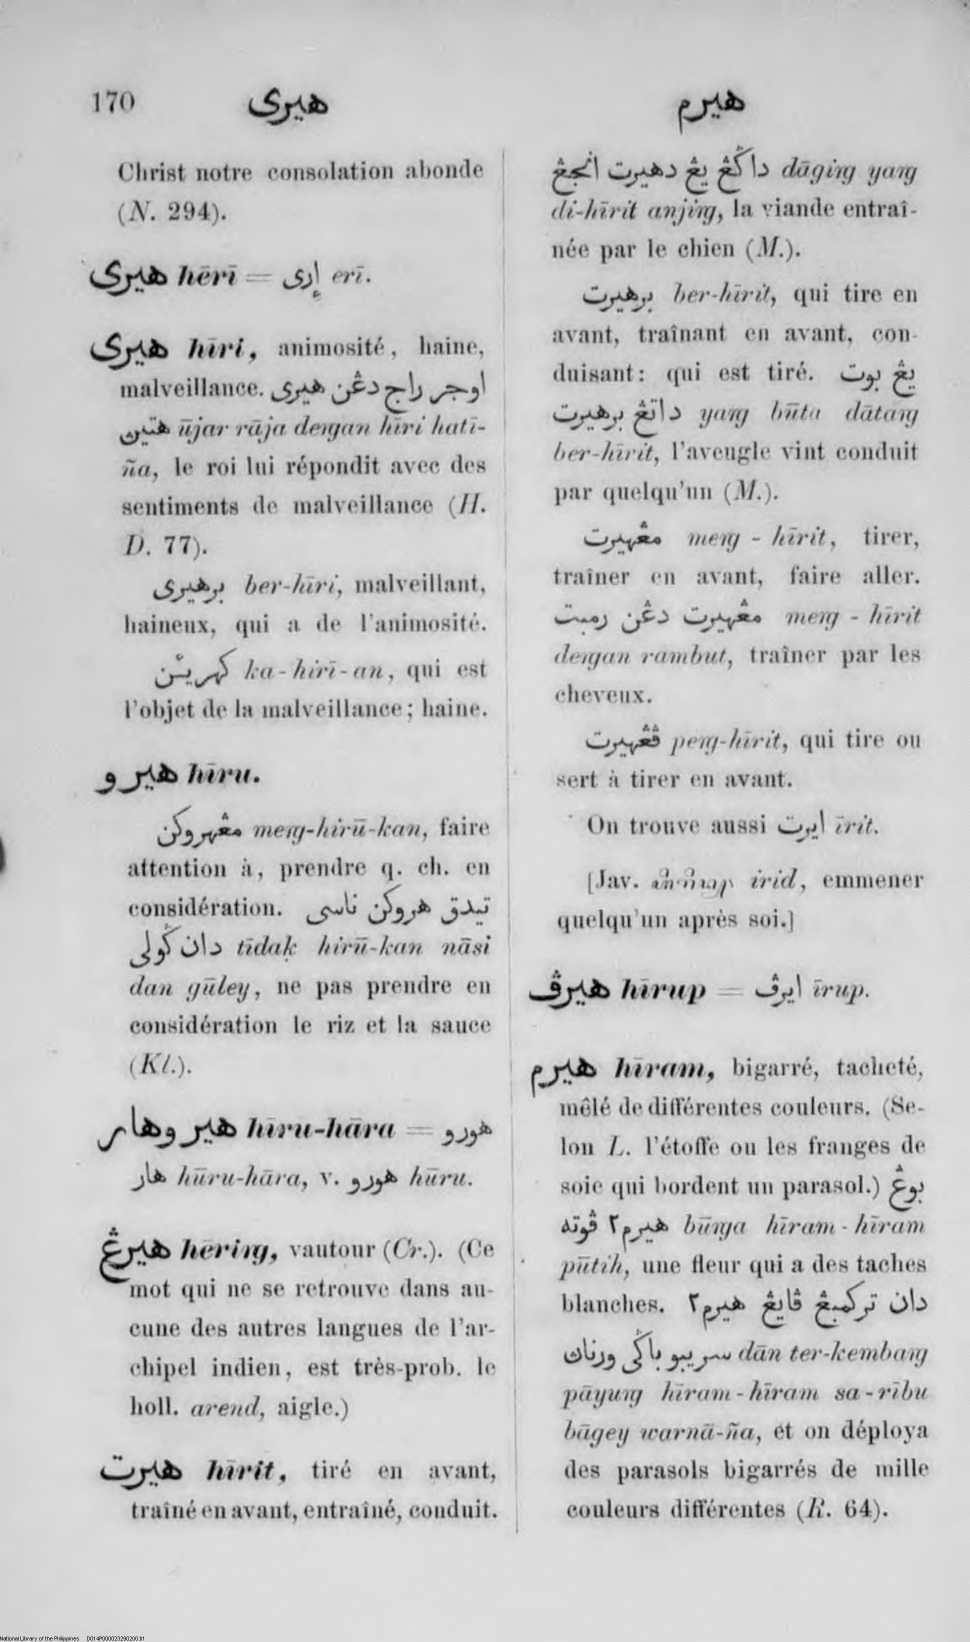 170 هيرى هيرم
Christ notre consolation abonde
(N. 294).
هيرى hērī = إرى erī.
هيرى hīri, animosité, haine,
malveillance. اوجر راج دڠن هيرى
هتين ūjar rāja deṅgan hīri hatī-
ña, le roi lui répondit avec des
sentiments de malveillance (H.
D. 77).
برهيرى ber-hīri, malveillant,
haineux, qui a de l'animosité.
كهريئن ka-hirī-an, qui est
l'objet de la malveillance; haine.
هيرو hīru.
مڠهروكن meṅg-hirū-kan, faire
attention à, prendre q. ch. en
considération. تيدق هروكن ناسى
دان ڬولى tīdaḳ hirū-kan nāsi
dan gūley, ne pas prendre en
considération le riz et la sauce
(Kl.).
هيروهار hīru-hāra = هورو
هار hūru-hāra, v. هورو hūru.
هيرڠ hēriṅg, vautour (Cr.). (Ce
mot qui ne se retrouve dans au-
cune des autres langues de l'ar-
chipel indien, est très-prob. le
holl. arend, aigle.)
هيرت hīrit, tiré en avant,
traîné en avant, entraîné, conduit.
داڬڠ يڠ دهيرت انجڠ dāgiṅg yaṅg
di-hīrit anjiṅg, la viande entraî-
née par le chien (M.).
برهيرت ber-hīrit, qui tire en
avant, traînant en avant, con-
duisant: qui est tiré. يڠ بوت
داتڠ برهيرت yaṅg būta dātaṅg
ber-hīrit, l'aveugle vint conduit
par quelqu'un (M.).
مڠهيرت meṅg-hīrit, tirer,
traîner en avant, faire aller.
مڠهيرت دڠن رمبت meṅg-hīrit
deṅgan rambut, traîner par les
cheveux.
ڤڠهيرت peṅg-hīrit, qui tire ou
sert à tirer en avant.
On trouve aussi ايرت īrit.
[Jav. irid, emmener
quelqu'un après soi.]
هيرڤ hīrup = ايرڤ īrup.
هيرم hīram, bigarré, tacheté,
mêlé de différentes couleurs. (Se-
lon L. l'étoffe ou les franges de
soie qui bordent un parasol.) بوڠ
هيرم٢ ڤوته būṅga hīram-hīram
pūtih, une fleur qui a des taches
blanches. دان تركمبڠ ڤايڠ هيرم٢
سريبو باڬى ورنان dān ter-kembaṅg
pāyuṅg hīram-hīram sa-rību
bāgey warnā-ña, et on déploya
des parasols bigarrés de mille
couleurs différentes (R. 64).
National Library of the Philippines